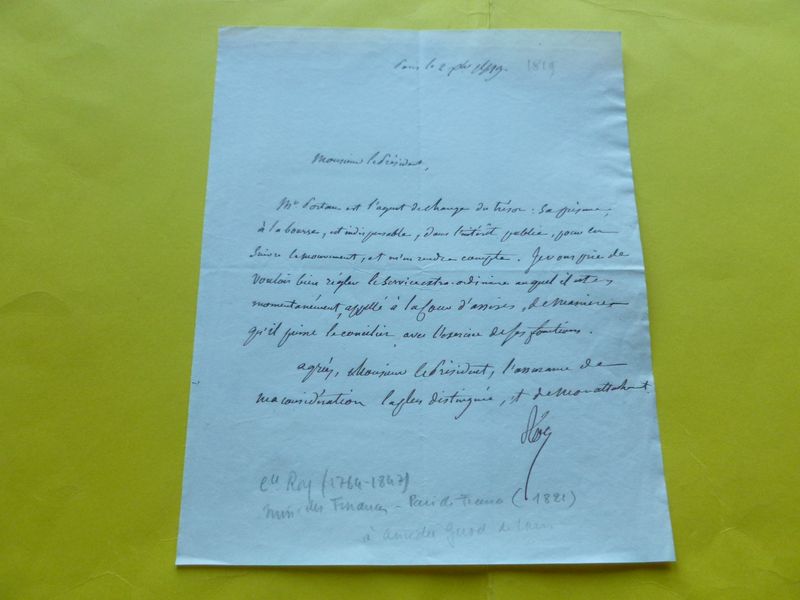 Paris le 2 1819. 1819
Monsieur le Président,
Mr est l'agent de change du trésor. Sa présence,
à la bourse, est indispensable, dans l'intérêt public, pour en
suivre le mouvement, et m'en rendre compte. Je vous prie de
vouloir bien régler le service extra-ordinaire auquel il est
momentanément, appellé à la Cour d'assises, de manière
qu'il puisse le concilier, avec l'exercice de ses fonctions.
agréez, Monsieur le Président, l'assurance de
ma considération la plus distinguée, et de mon attachement.
Roy
Cte Roy (1764-1847)
min. des Finances - Pair de France (1821)
à Amédée Girod de l'Ain